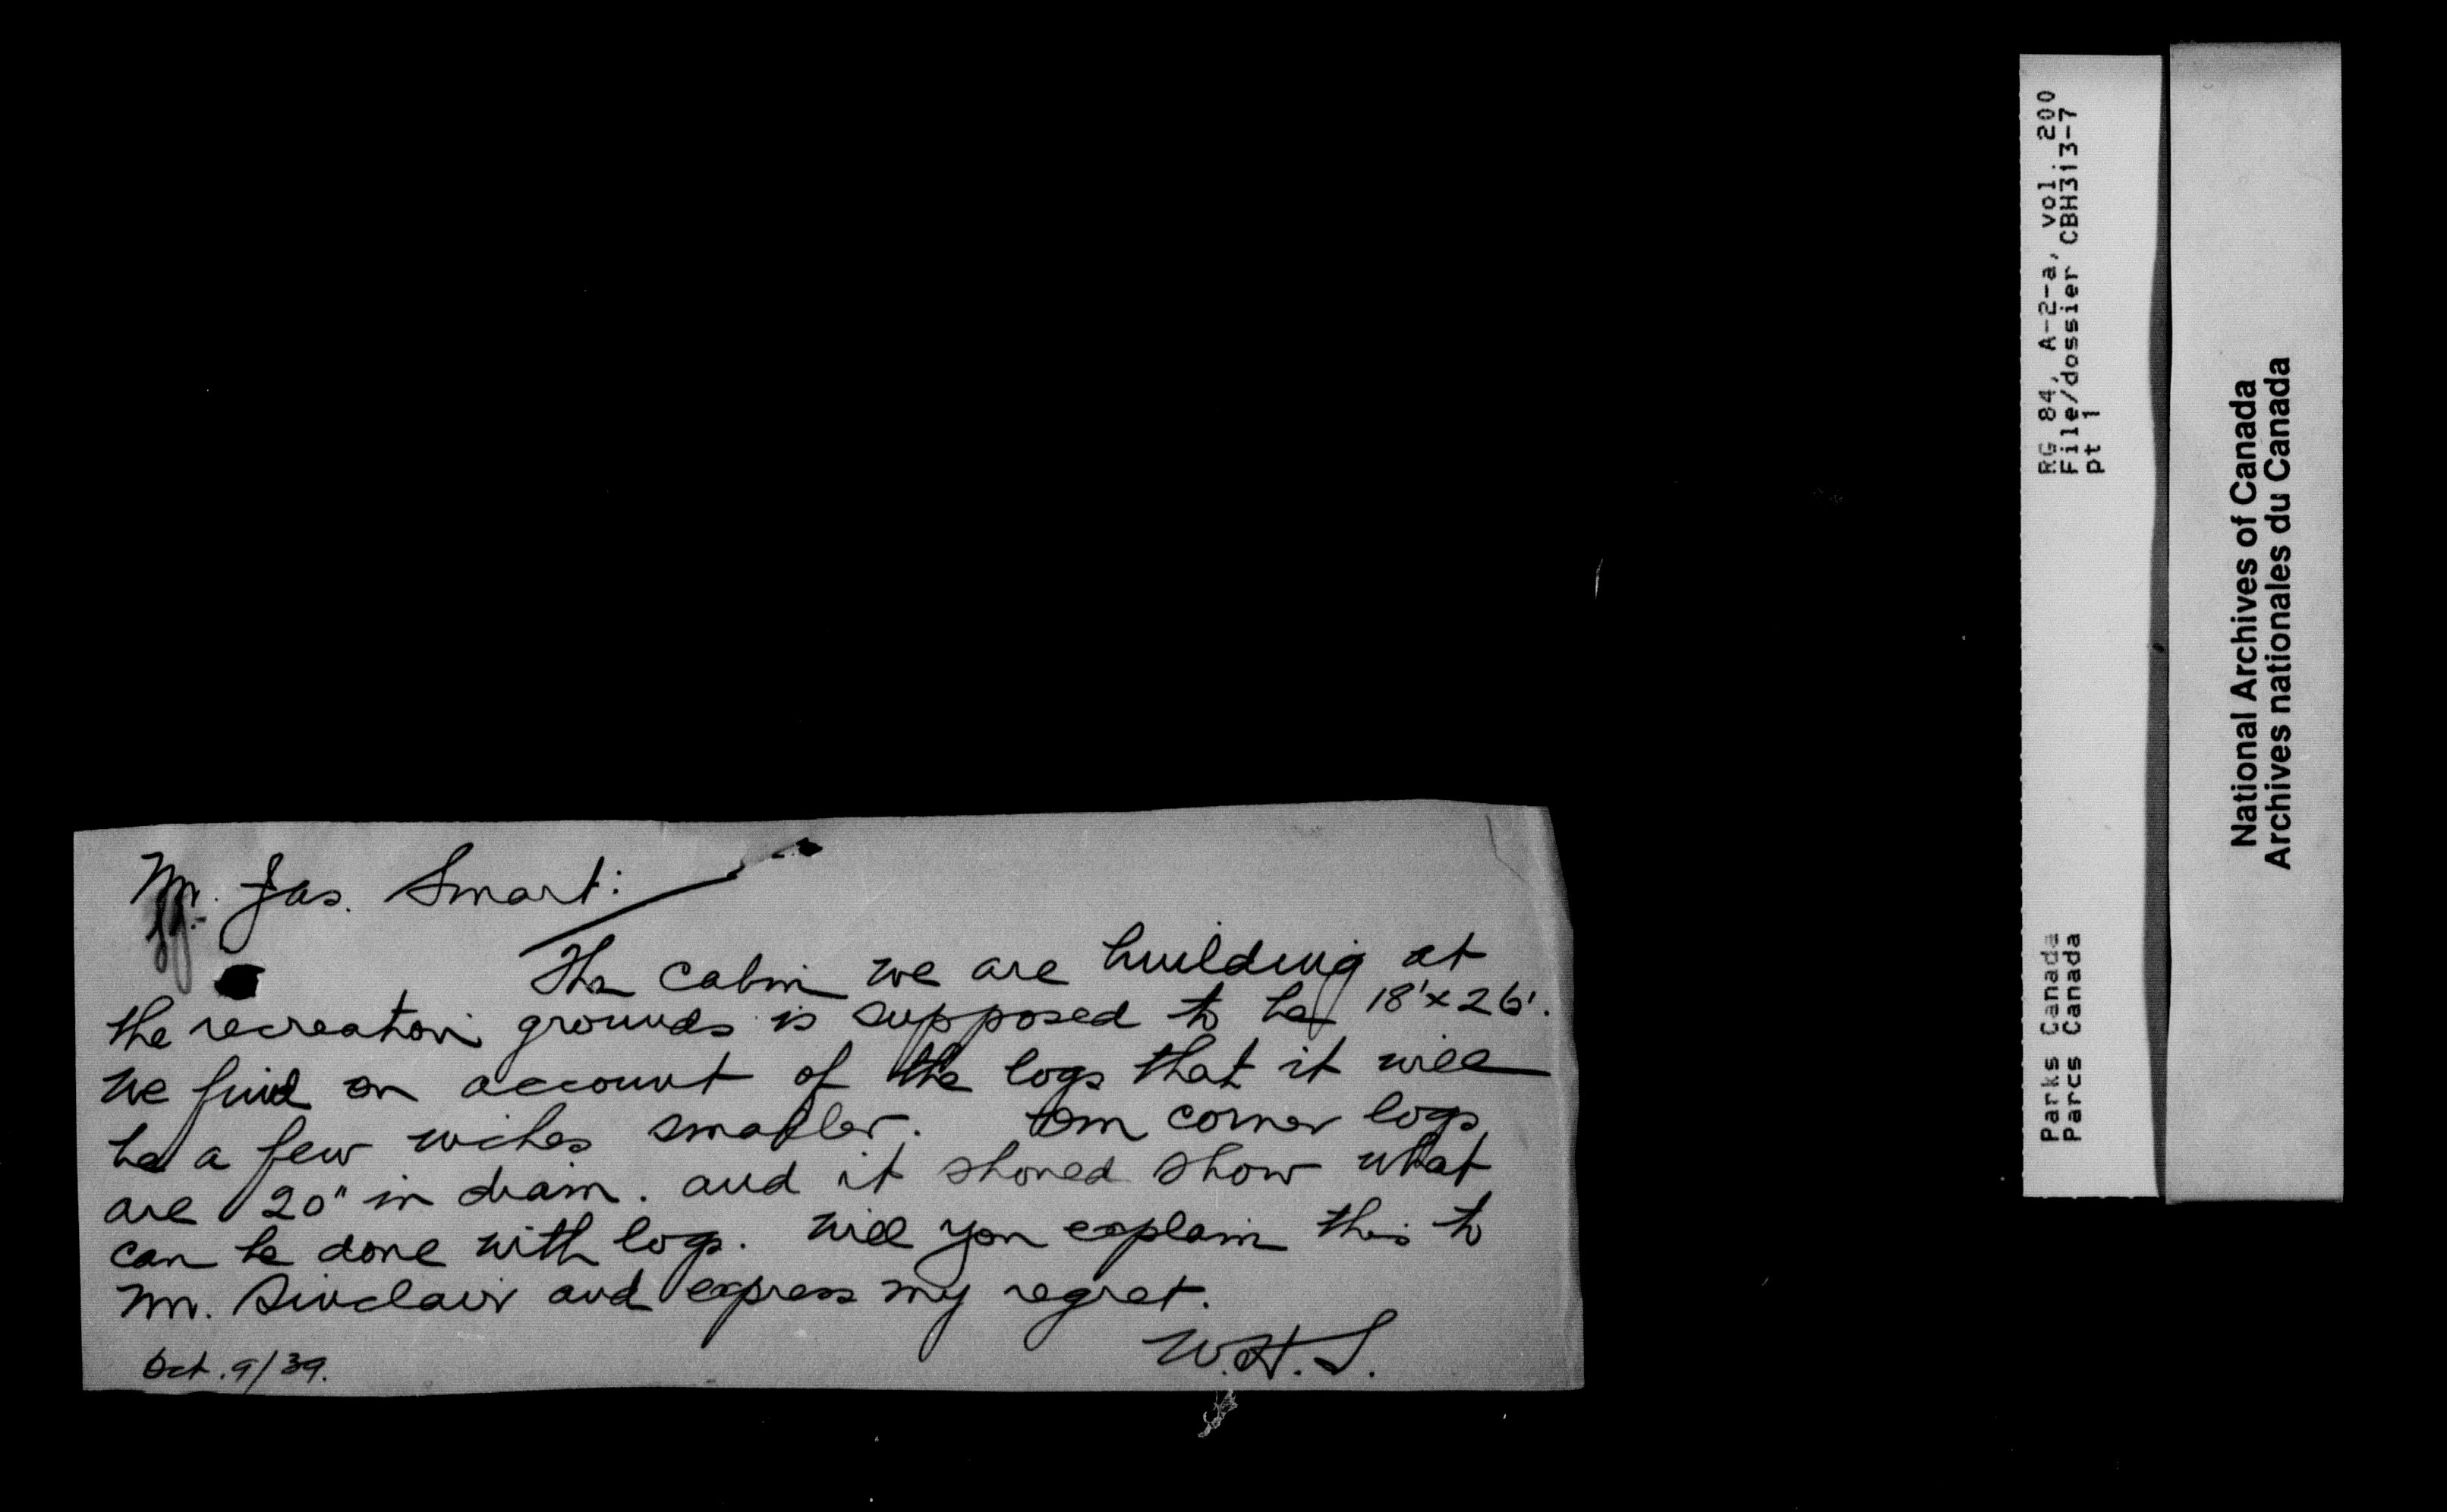 Mr. Jas. Smart:
The cabin we are building at
the recreation grounds is supposed to be 18'x26'.
We find on account of the logs that it will
be a few inches smaller. corner logs
are 20" in diam. and it should show what
can be done with logs. Will you explain this to
Mr. Sinclair and express my regret.
W.H.S.
Oct. 9/39.
RG 84, A-2-a, vol. 200
File/dossier CBH313-7
pt 1
Parks Canada
Parcs Canada
National Archives of Canada
Archives nationales du Canada